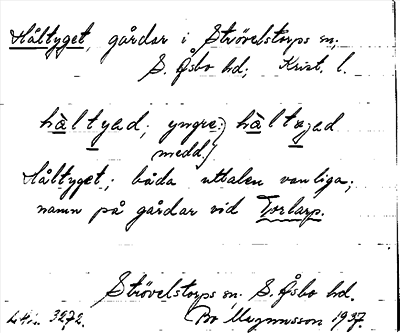 Håltyget, gårdar i Strövelstorps sn;
S. Åsbo hd; Krist. l.
hàltyed; yngre:) hàltygd
medd.)
Håltyget; båda uttalen vanliga;
namn på gårdar vid Torlarp.
Strövelstorps sn. S. Åsbo hd.
3272. Bo Magnusson 1937.